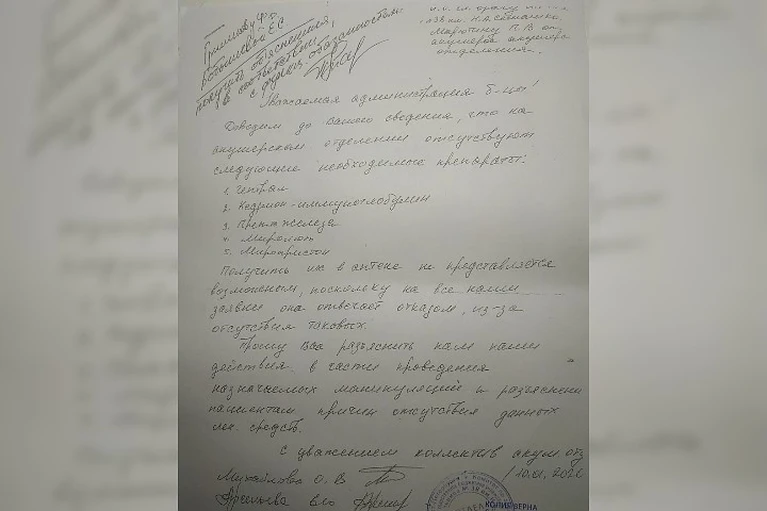 получить объяснения,
в соответствии
с функц. обязанностями
Марютину П. В. от
акушеров акушерск.
отделения.
Уважаемая администрация б-цы!
Доводим до Вашего сведения, что на
акушерском отделении отсутствуют
следующие необходимые препараты:
1. Гептрал
2. Кедрион-иммуноглобулин
3. Преп-ты железа
4. Миролют
5. Миропристон
Получить их в аптеке не представляется
возможным, поскольку на все наши
заявки она отвечает отказом, из-за
отсутствия таковых.
Прошу Вас разъяснить нам наши
действия в части проведения
назначаемых манипуляций и разъяснени
пациентам причин отсутствия данных
лек. средств.
С уважением коллектив акуш. отд
Михайлова О. В
/ 10.01.
КОПИЯ ВЕРНА